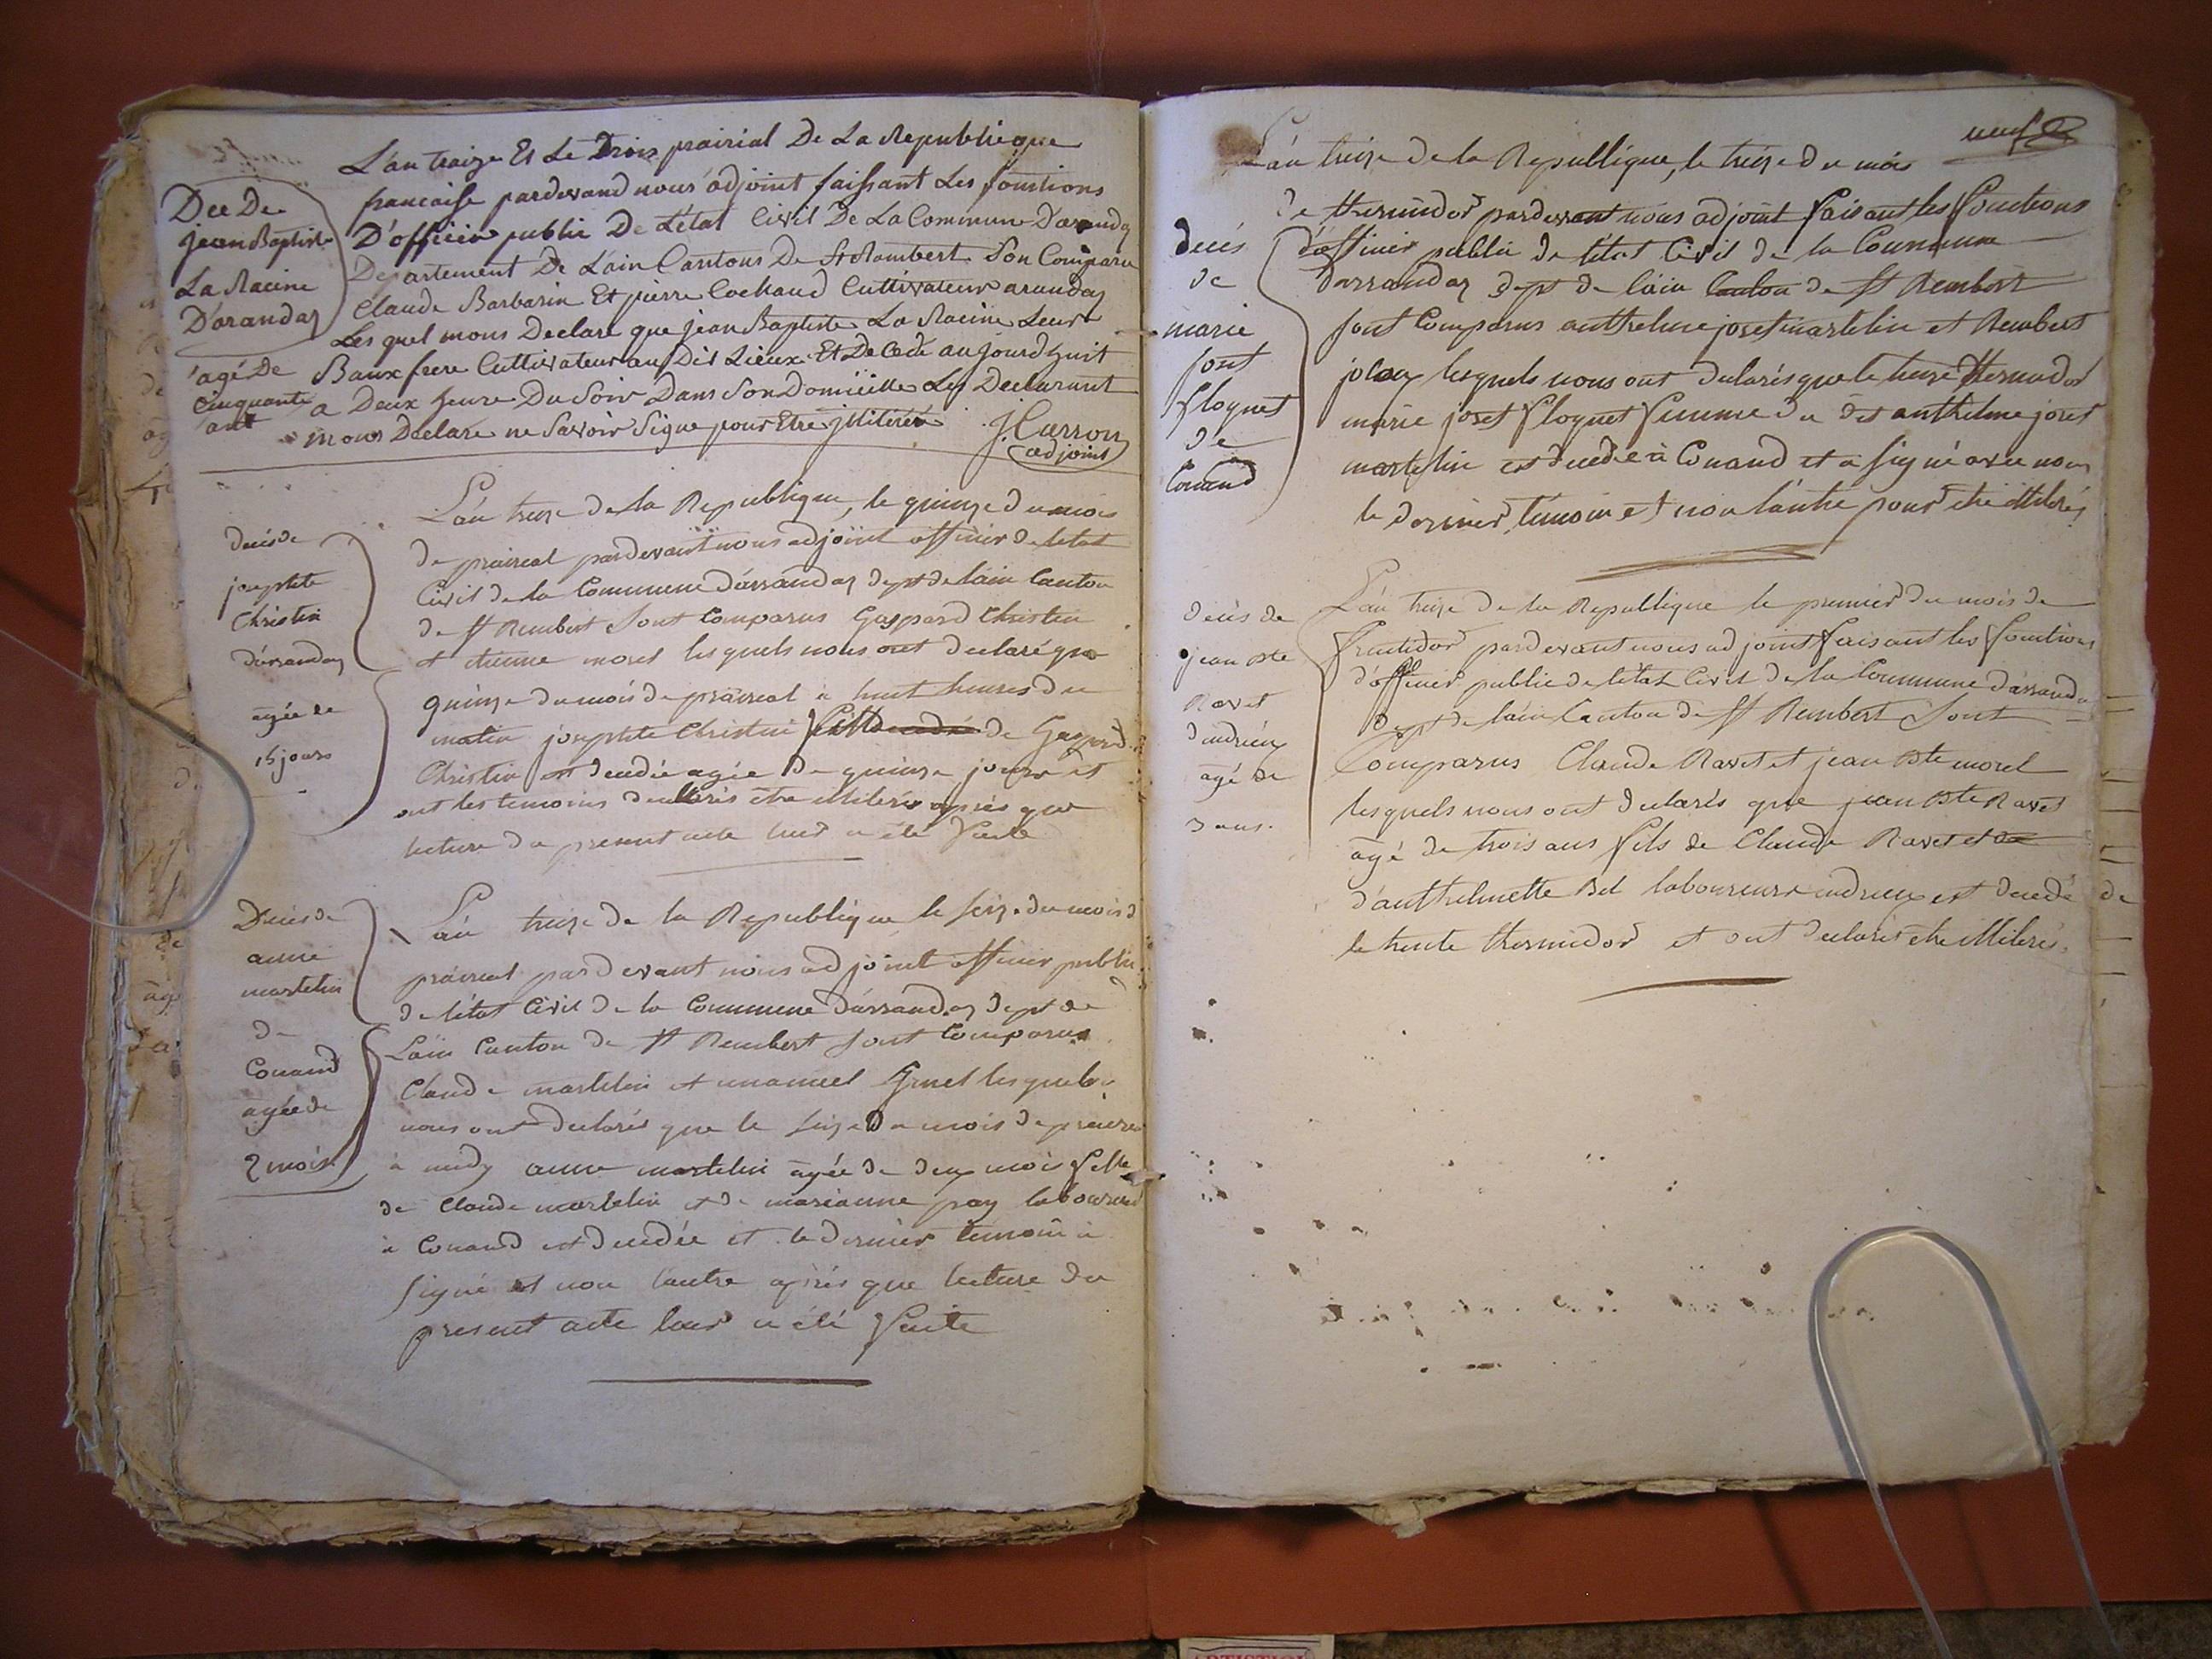 L'an traize Et Le Trois prairial De La Republieque
francaisse pardevand nous adjoint faissant Les fonstions
D'officier public De L'état Civil De La Commune D'aranday
Departement De L'ain Cantons De St Rambert Son Comparu
Claude Barbarin Et pierre Cochaud Cultivateur aranday
Les quel mons Declare que jean Baptiste La Racine Leur
Baux frere Cultivateur au Dit Lieux Et De Cedé aujourdhuit
a Deux heure Du Soir Dans Son Domicille Les Declarant
mons Declare ne Savoir Signe pour Etre illiteré
J. Carron
adjoint
Dee De
jean Baptiste
La Racine
D'aranday
agé De
Cinquante
ant
L'an treize de la Republique, le quinze du mois
de praireal pardevant nous adjoint officier de letat
Civil de la Commune d'arranday dept de lain Canton
de St Rembert Sont Comparus Gaspard Christin
et etienne morel lesquels nous ont declaré que
quinze du mois de praireal a huit heures du
matin josephte Christin fille de Gaspard
Christin est decedée agée de quinze jours et
ont les temoins declarés etre illiterés après que
lecture du present acte leur a été faite
decés de
josephte
Christin
d'arranday
agée de
15 jours
L'an treize de la Republique le seize du mois d
praireal pardevant nous adjoint officier public
de létat Civil de la Commune d'arranday dept de
Lain Canton de St Rembert sont Comparus
Claude martelin et lesquels
nous ont declarés que le seize du mois de prairea
à midy anne martelin agée de deux mois fille
de Claude martelin et de marianne pay laboureur
à Conand est decedée et le dernier temoin a
signé et non l'autre après que lecture du
present acte leur a été faite
Decés de
anne
martelin
de
Conand
agée de
2 mois
neuf
L'an treize de la Republique, le treize du mois
de thermidor pardevant nous adjoint faisant les fonctions
d'officier public de létat Civil de la Commune
darranday dept de lain Canton de St Rembert
sont Comparus anthelme josef martelin et Rembert
joly lesquels nous ont declarés que le treize thermidor
marie josef floquet femme du dit anthelme josef
martelin est decedée à Conand et a signé avec nous
le dernier temoin et non l'autre pour etre illiterés
decés
de
marie
joset
floquet
de
Conand
L'an treize de la Republique le premier du mois de
fructidor pardevant nous adjoint faisant les fonctions
d'officier public de létat Civil de la Commune d'arranda
dept de lain Canton de St Rembert Sont
Comparus Claude Ravet et jean Bte morel
lesquels nous ont declarés que jean Bte Ravet
agé de trois ans fils de Claude Ravet et de
d'anthelmette Bel laboureurs indrieux est decedé
le trente thermidor et ont declarés etre illiterés.
decés de
jean Bte
Ravet
d'indrieux
agé de
3 ans.